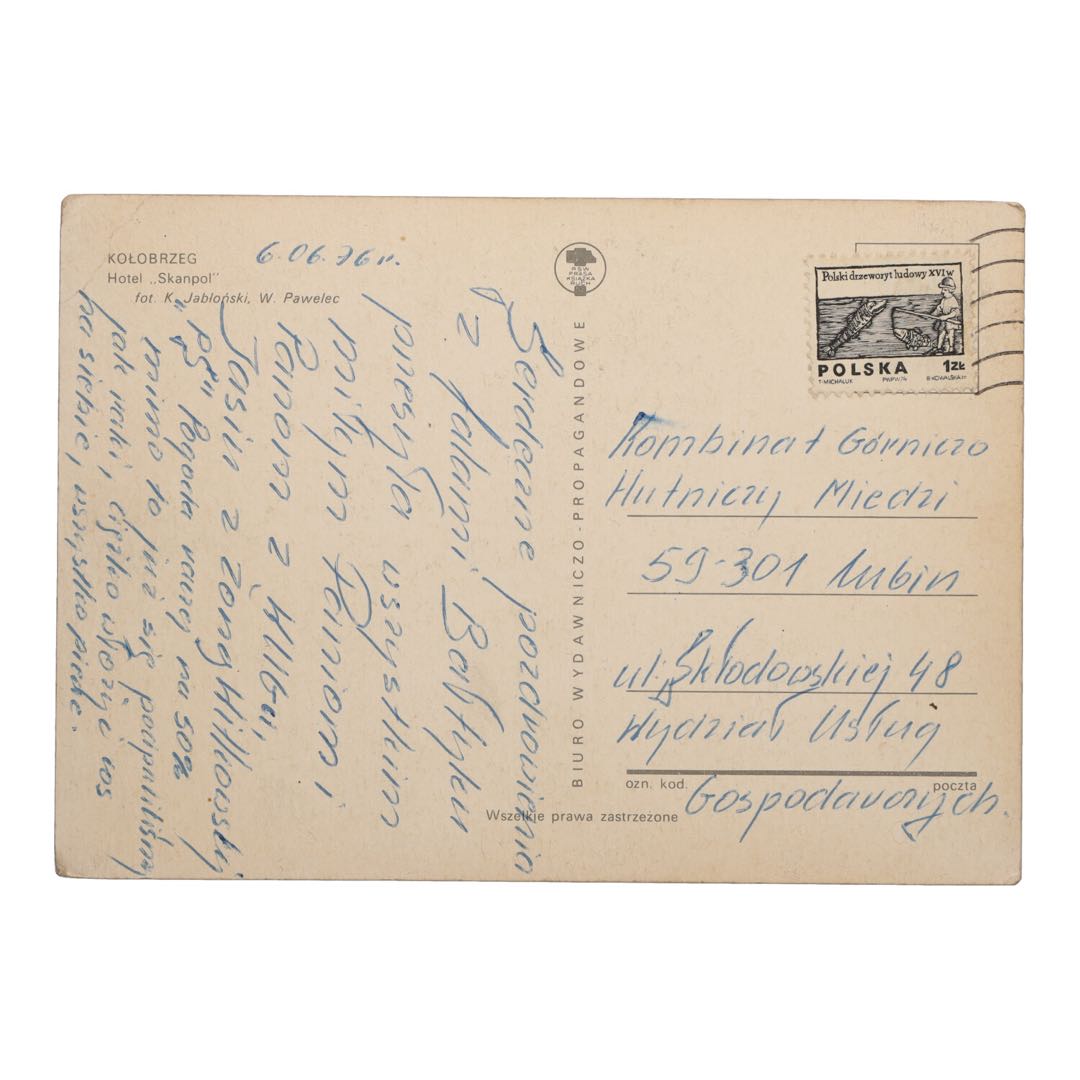 KOŁOBRZEG
Hotel „Skanpol"
fot. K. Jabłoński, W. Pawelec
6.06.76 r.
Serdeczne pozdrowienia
z falami Bałtyku
przesyła wszystkim
miłym Paniom i
Panom z KUGu,
Jasiu z Żoną Witkowscy
"PS" Pogoda raczej na 50%
mimo to już się poopalaliśmy
jak raki, ciężko włożyć coś
na siebie, wszystko piecze.
RSW
PRASA
KSIĄŻKA
RUCH
BIURO WYDAWNICZO-PROPAGANDOWE
Polski drzeworyt ludowy XVI w
POLSKA 1 ZŁ
T. MICHALUK PWPW/74 B. KOWALSKA
Kombinat Górniczo
Hutniczy Miedzi
59-301 Lubin
ul. Skłodowskiej 48
Wydział Usług
ozn. kod. poczta
Gospodarczych.
Wszelkie prawa zastrzeżone